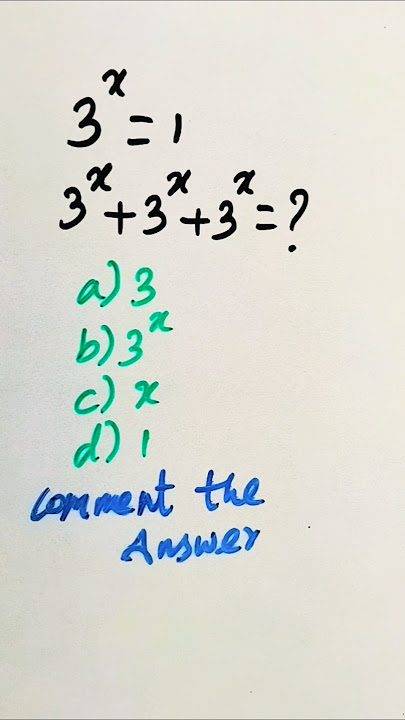 3^x = 1
3^x + 3^x + 3^x = ?
a) 3
b) 3^x
c) x
d) 1
comment the
Answer